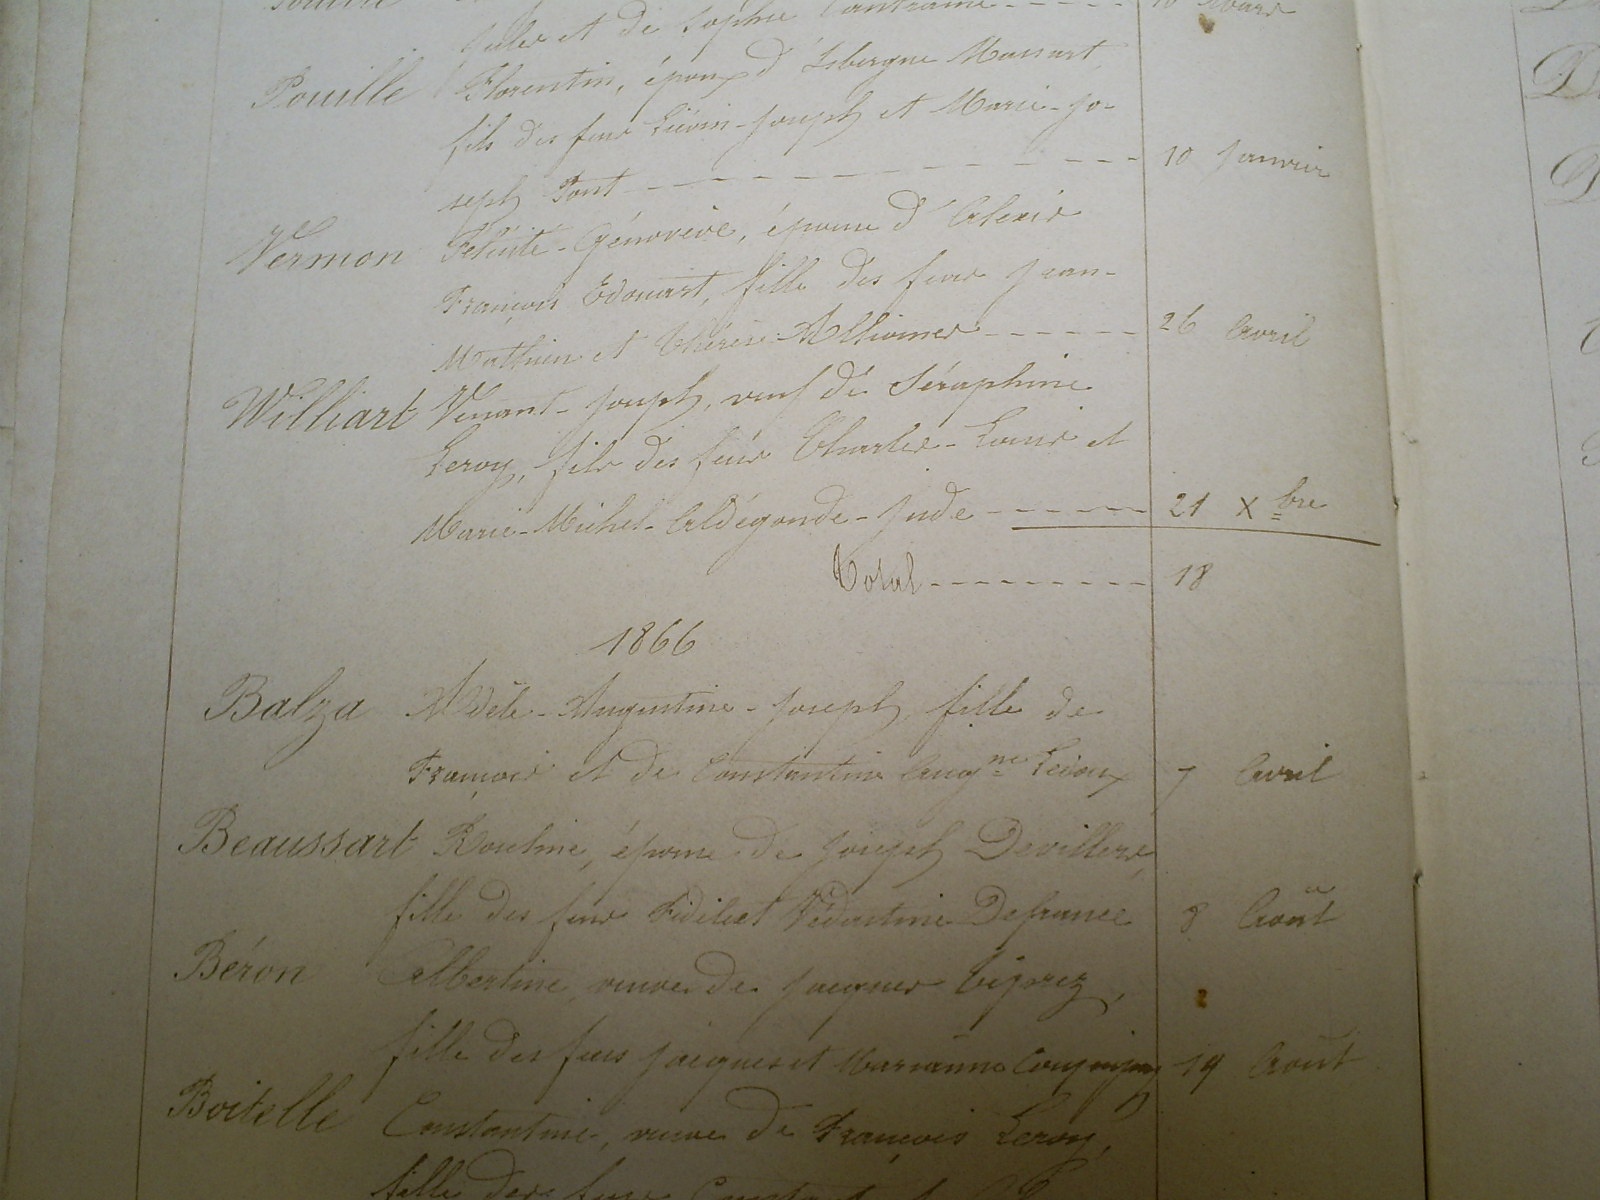 Jules et de Sophie Cantraine ---- 10 Mars
Pouille Florentin, époux d'Isbergue Massart,
fils des feus Liévin-Joseph et Marie-Jo-
seph Pont ---------- 10 Janvier
Vermon Félicité-Géneviève, épouse d'Alexis
François Edouart, fille des feus Jean-
Mathieu et Thérèse ------ 26 Avril
Williart Venant-Joseph, veuf de Séraphine
Leroy, fils des feus Charles-Louis et
Marie-Michel-Aldégonde-Jude ------ 21 Xbre
Total --------- 18
1866
Balza Adèle-Augustine-Joseph, fille de
François et de Constantine Augne 7 Avril
Beaussart Roseline, épouse de Joseph Devillers,
fille des feus Fidèle et Védastine Defrance 8 Août
Béron Albertine, veuve de Jacques
fille des feus Jacques et Marianne 19 Août
Boitelle Constantine, veuve de François Leroy,
fille des feus